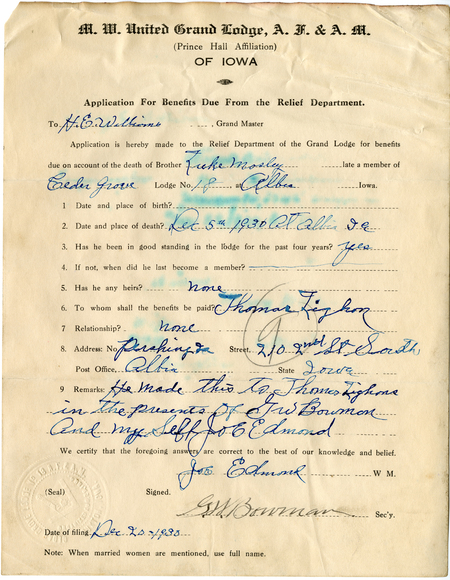 M. W. United Grand Lodge, A. F. & A. M.
(Prince Hall Affiliation)
OF IOWA
Application For Benefits Due From the Relief Department.
To H.E. Williams, Grand Master
Application is hereby made to the Relief Department of the Grand Lodge for benefits
due on account of the death of Brother Luke Mosley late a member of
Ceder Grove Lodge No. 18 at Albia Iowa.
1 Date and place of birth?
2 Date and place of death? Dec 5th 1930 At Albia Ia
3 Has he been in good standing in the lodge for the past four years? yes
4 If not, when did he last become a member?
5 Has he any heirs? none
6 To whom shall the benefits be paid? Thomas Tighon
7 Relationship? none
8 Address: No. Street, 210 2nd St South
Post Office, Albia State Iowa
9 Remarks: He made this to Thomas Tighons
in the presents of G W Bowmon
And my Self Joe Edmond
We certify that the foregoing answers are correct to the best of our knowledge and belief.
Joe Edmond W M.
(Seal) Signed.
G W Bowman Sec'y.
Date of filing Dec 20-1930
Note: When married women are mentioned, use full name.